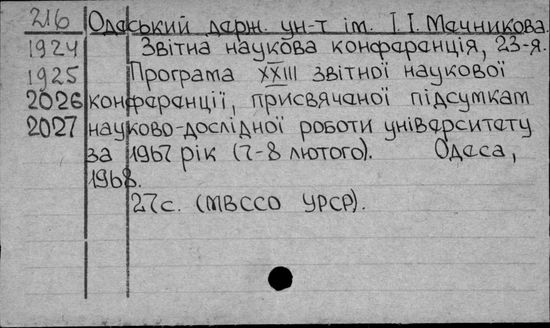 216 Одеський держ. ун-т ім. І.І.Мечникова.
1924 Звітна наукова конференція, 23-я.
1925 Програма XXIII звітної наукової
2026 конференції, присвяченої підсумкам
2027 науково-дослідної роботи університету
за 1967 рік (7-8 лютого). Одеса,
1968.
27с. (МВССО УРСР).